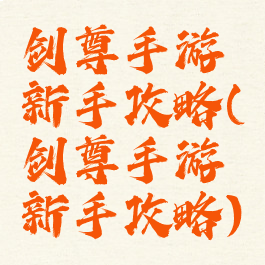 剑尊手游
新手攻略(
剑尊手游
新手攻略)